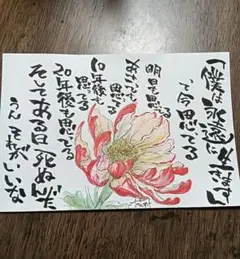 「僕は永遠に生きます」
って今思ってる
明日も思ってる
あさっても思ってる
10年後も
思ってる
20年後も思ってる
そしてある日死ぬんだ
うん それがいいな